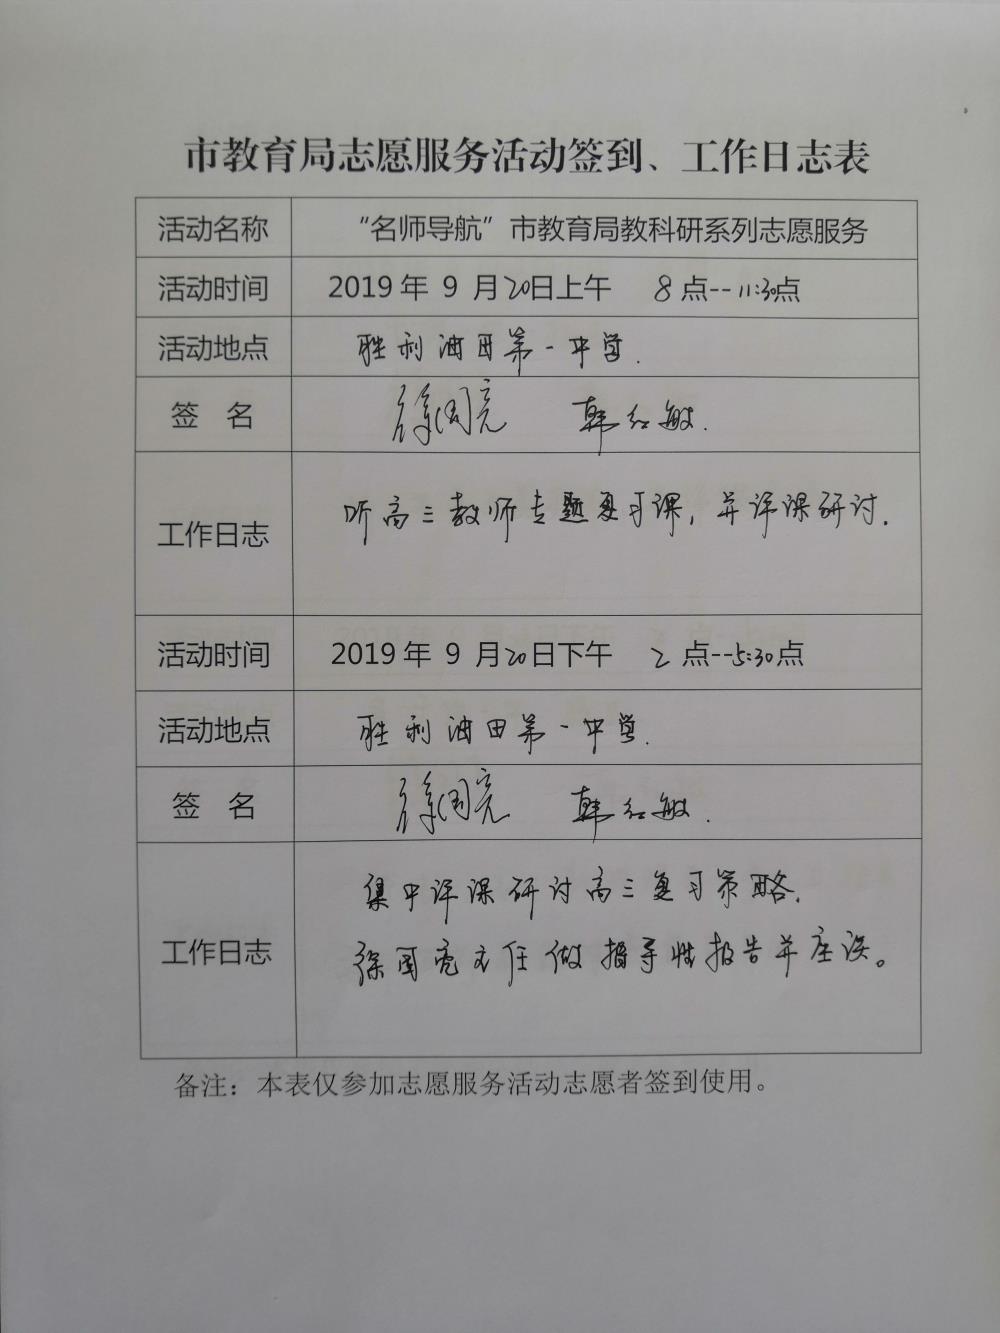 市教育局志愿服务活动签到、工作日志表
活动名称 “名师导航”市教育局教科研系列志愿服务
活动时间 2019年 9 月20日上午 8 点--11:30点
活动地点 胜利油田第一中学.
签 名 徐国亮 韩红敏.
工作日志 听高三教师专题复习课,并评课研讨.
活动时间 2019年 9 月20日下午 2 点--5:30点
活动地点 胜利油田第一中学.
签 名 徐国亮 韩红敏.
工作日志 集中评课研讨高三复习策略.
徐国亮主任做指导性报告并座谈。
备注：本表仅参加志愿服务活动志愿者签到使用。